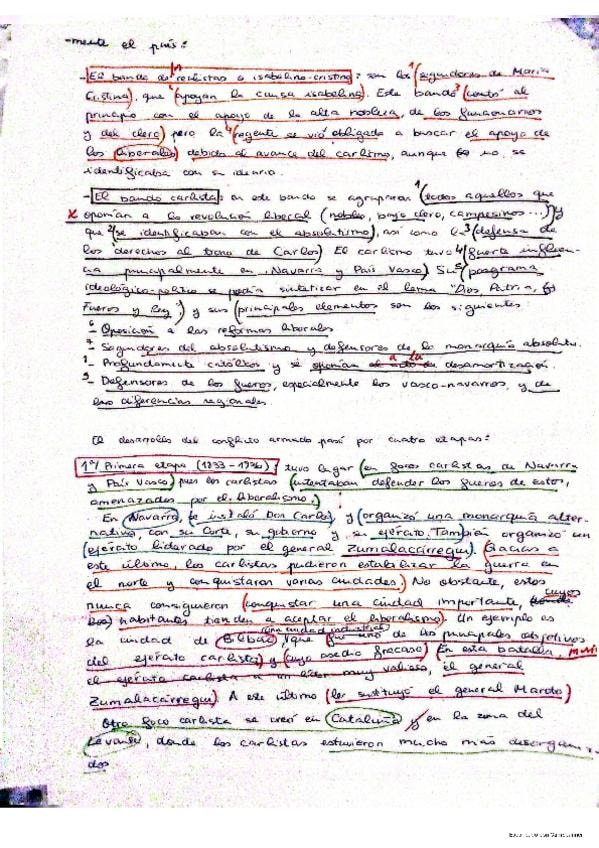 -mente el país:
- El bando de realistas o isabelino-cristino: son los (seguidores de María
Cristina), que (apoyan la causa isabelina). Este bando (contó al
principio con el apoyo de la alta nobleza, de los funcionarios
y del clero) pero la (regente se vió obligada a buscar el apoyo de
los liberales) debido al avance del carlismo, aunque no se
identificaba con su ideario.
- El bando carlista: en este bando se agruparon (todos aquellos que
x oponían a la revolución liberal (nobles, bajo clero, campesinos...)) y
que (se identificaban con el absolutismo), así como (defensa de
los derechos al trono de Carlos) El carlismo tuvo (fuerte influen-
cia principalmente en Navarra y País Vasco) Su (programa
ideológico-político se podía sintetizar en el lema "Dios, Patria,
Fueros y Rey") y sus (principales elementos son los siguientes:
- Oposición a las reformas liberales
- Seguidores del absolutismo y defensores de la monarquía absoluta.
- Profundamente católicos y se oponían a la desamortización.
- Defensores de los fueros, especialmente los vasco-navarros, y de
las diferencias regionales.
El desarrollo del conflicto armado pasó por cuatro etapas:
1º/ Primera etapa (1833-1836): tuvo lugar (en focos carlistas de Navarra
y País Vasco) pues los carlistas (intentaban defender los fueros de estos,
amenazados por el liberalismo.)
En Navarra, se instaló Don Carlos, y (organizó una monarquía alter-
nativa, con su Corte, su gobierno y su ejército. También organizó un
(ejército liderado por el general Zumalacárregui). (Gracias a
este último, los carlistas pudieron estabilizar la guerra en
el norte y conquistaron varias ciudades.) No obstante, estos
nunca consiguieron (conquistar una ciudad importante, cuyos
habitantes tienden a aceptar el liberalismo). Un ejemplo es
la ciudad de Bilbao, que una ciudad industrial de los principales objetivos
del ejército carlista) y (cuyo asedio fracasó) En esta batalla, murió
el ejército carlista a un líder muy valioso, el general
Zumalacárregui) A este último (le sustituyó el general Maroto)
Otro foco carlista se creó en Cataluña y en la zona del
Levante, donde los carlistas estuvieron mucho más desorgani-
dos